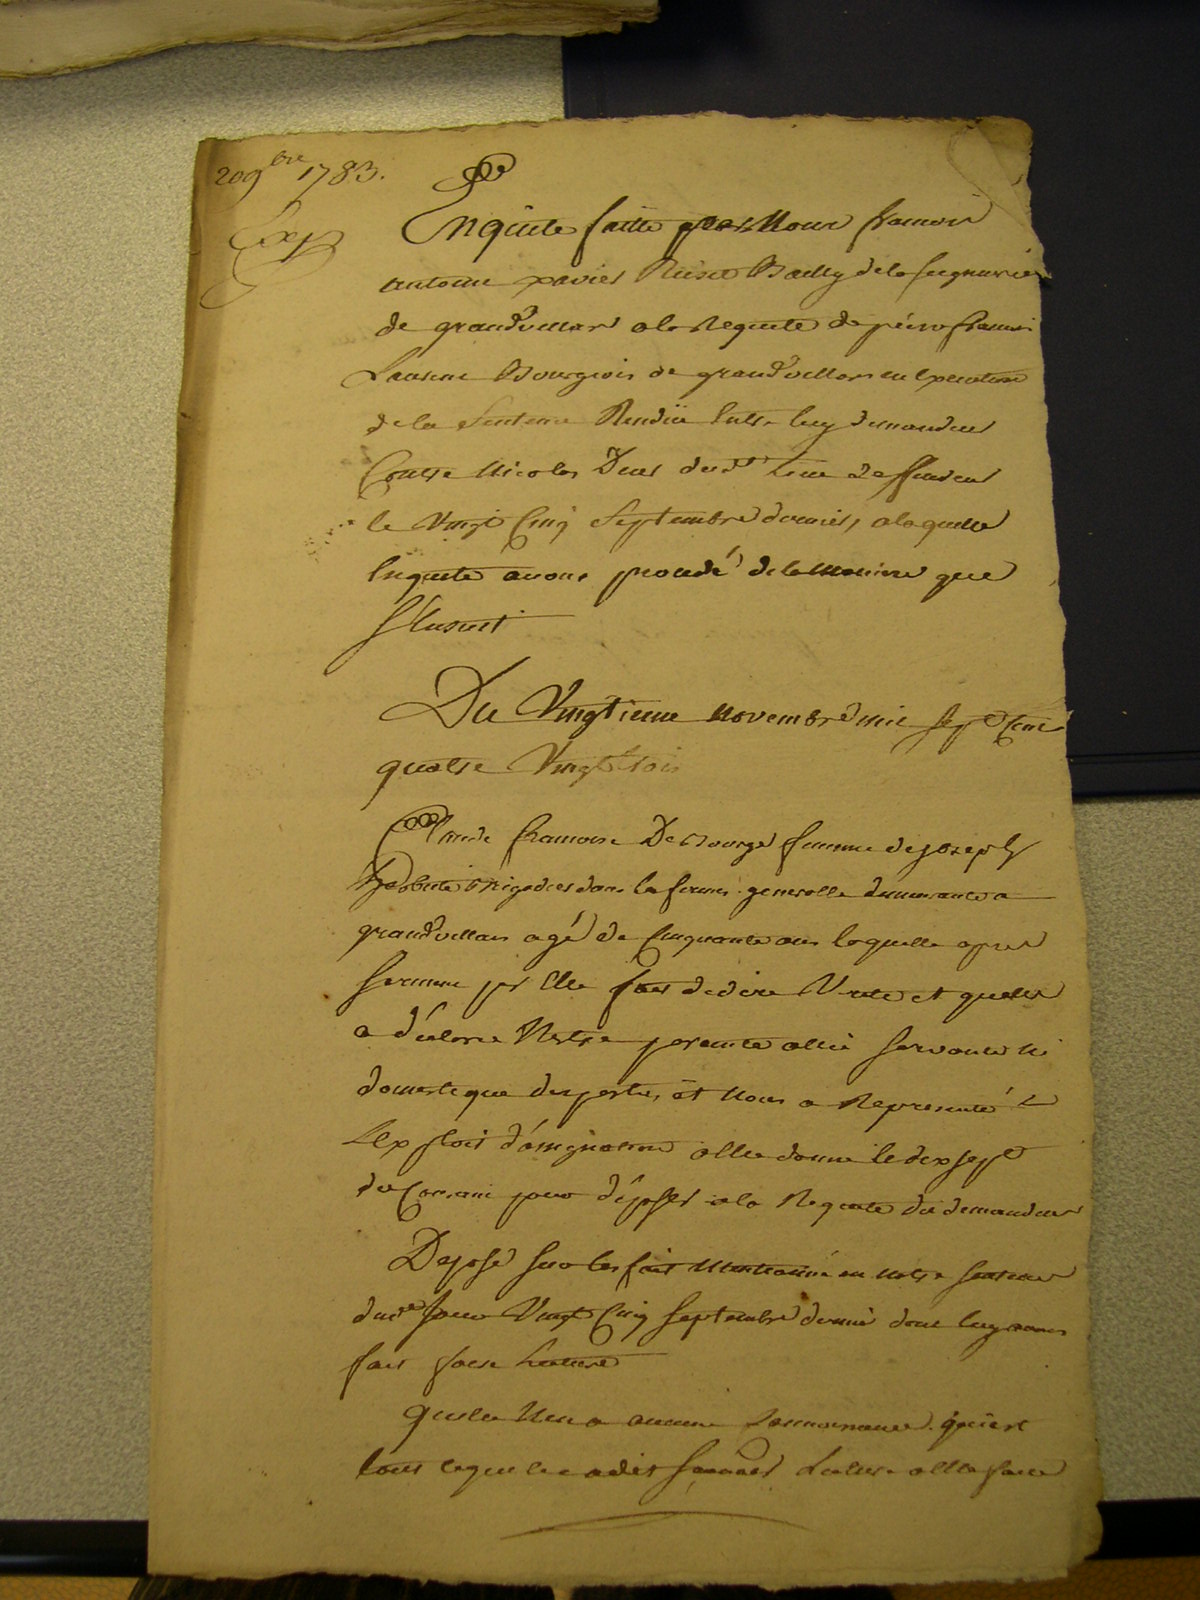 20 9bre 1783.
Exp
Enquete faitte par Nous francois
antoine xavier Bailly de la seigneurie
de grandvillars a la Requete de pierre francois
Bourgeois de grandvillars en Execution
de la Sentence Rendüe Entre luy demandeur
Contre Nicolas dud.t lieu deffendeur
le Vingt Cinq Septembre dernier, a laquelle
Enquete avons procedé de la Maniere que
s'Ensuit
Du Vingtieme Novembre mil sept Cent
quatre Vingt trois
Claude francoise Debourge femme de joseph
brigadier dans les fermes generalle demeurante a
grandvillars agé de Cinquante ans laquelle apres
serment par Elle fait de dire Verité et quelle
a déclaré Nestre parente allié servante ni
domestique des parties, et Nous a Representé
l'Exploit d'assignation a Elle donné le dix sept
du Courant pour déposer a la Requete du demandeur
Depose sur les fait Mentionné en notre sentence
dud.t jour Vingt Cinq Septembre dernier dont luy avons
fait faire Lecture
quelle N'en a aucune Connoissance qui est
tout ce quelle a dit scavoir Lecture a Elle faite